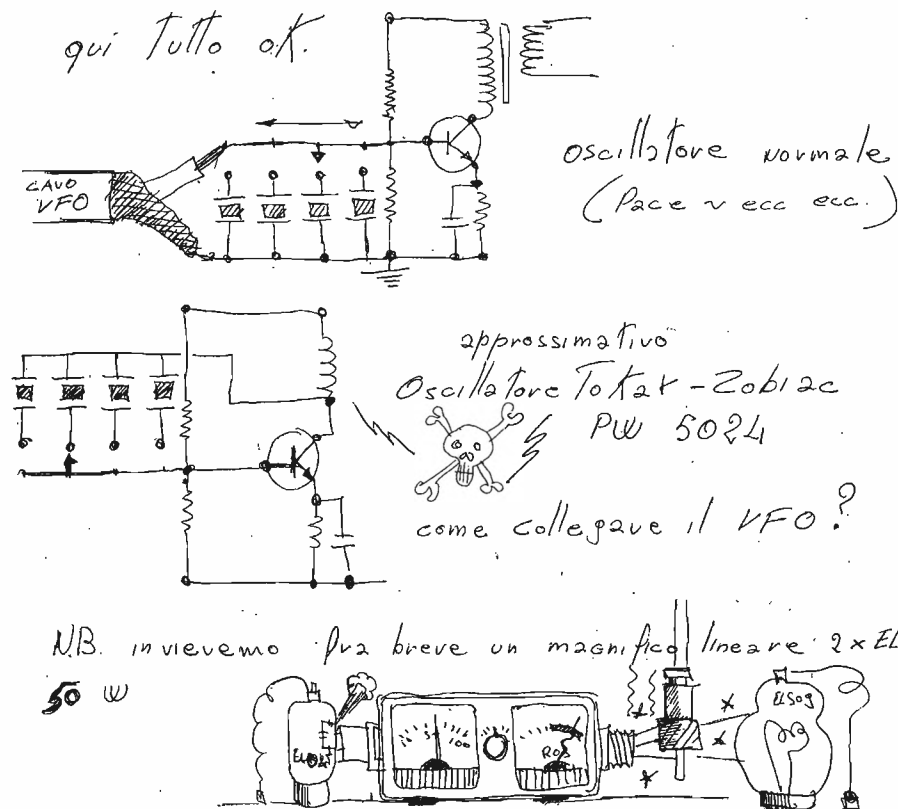 qui tutto o.K.
CAVO
VFO
oscillatore normale
(Pace v ecc ecc.)
approssimativo
Oscillatore ToKaK - Zobiac
PW 5024
come collegave il VFO?
N.B. invievemo fra breve un magnifico lineare 2 x EL
50 W
50 100
ROS
EL509